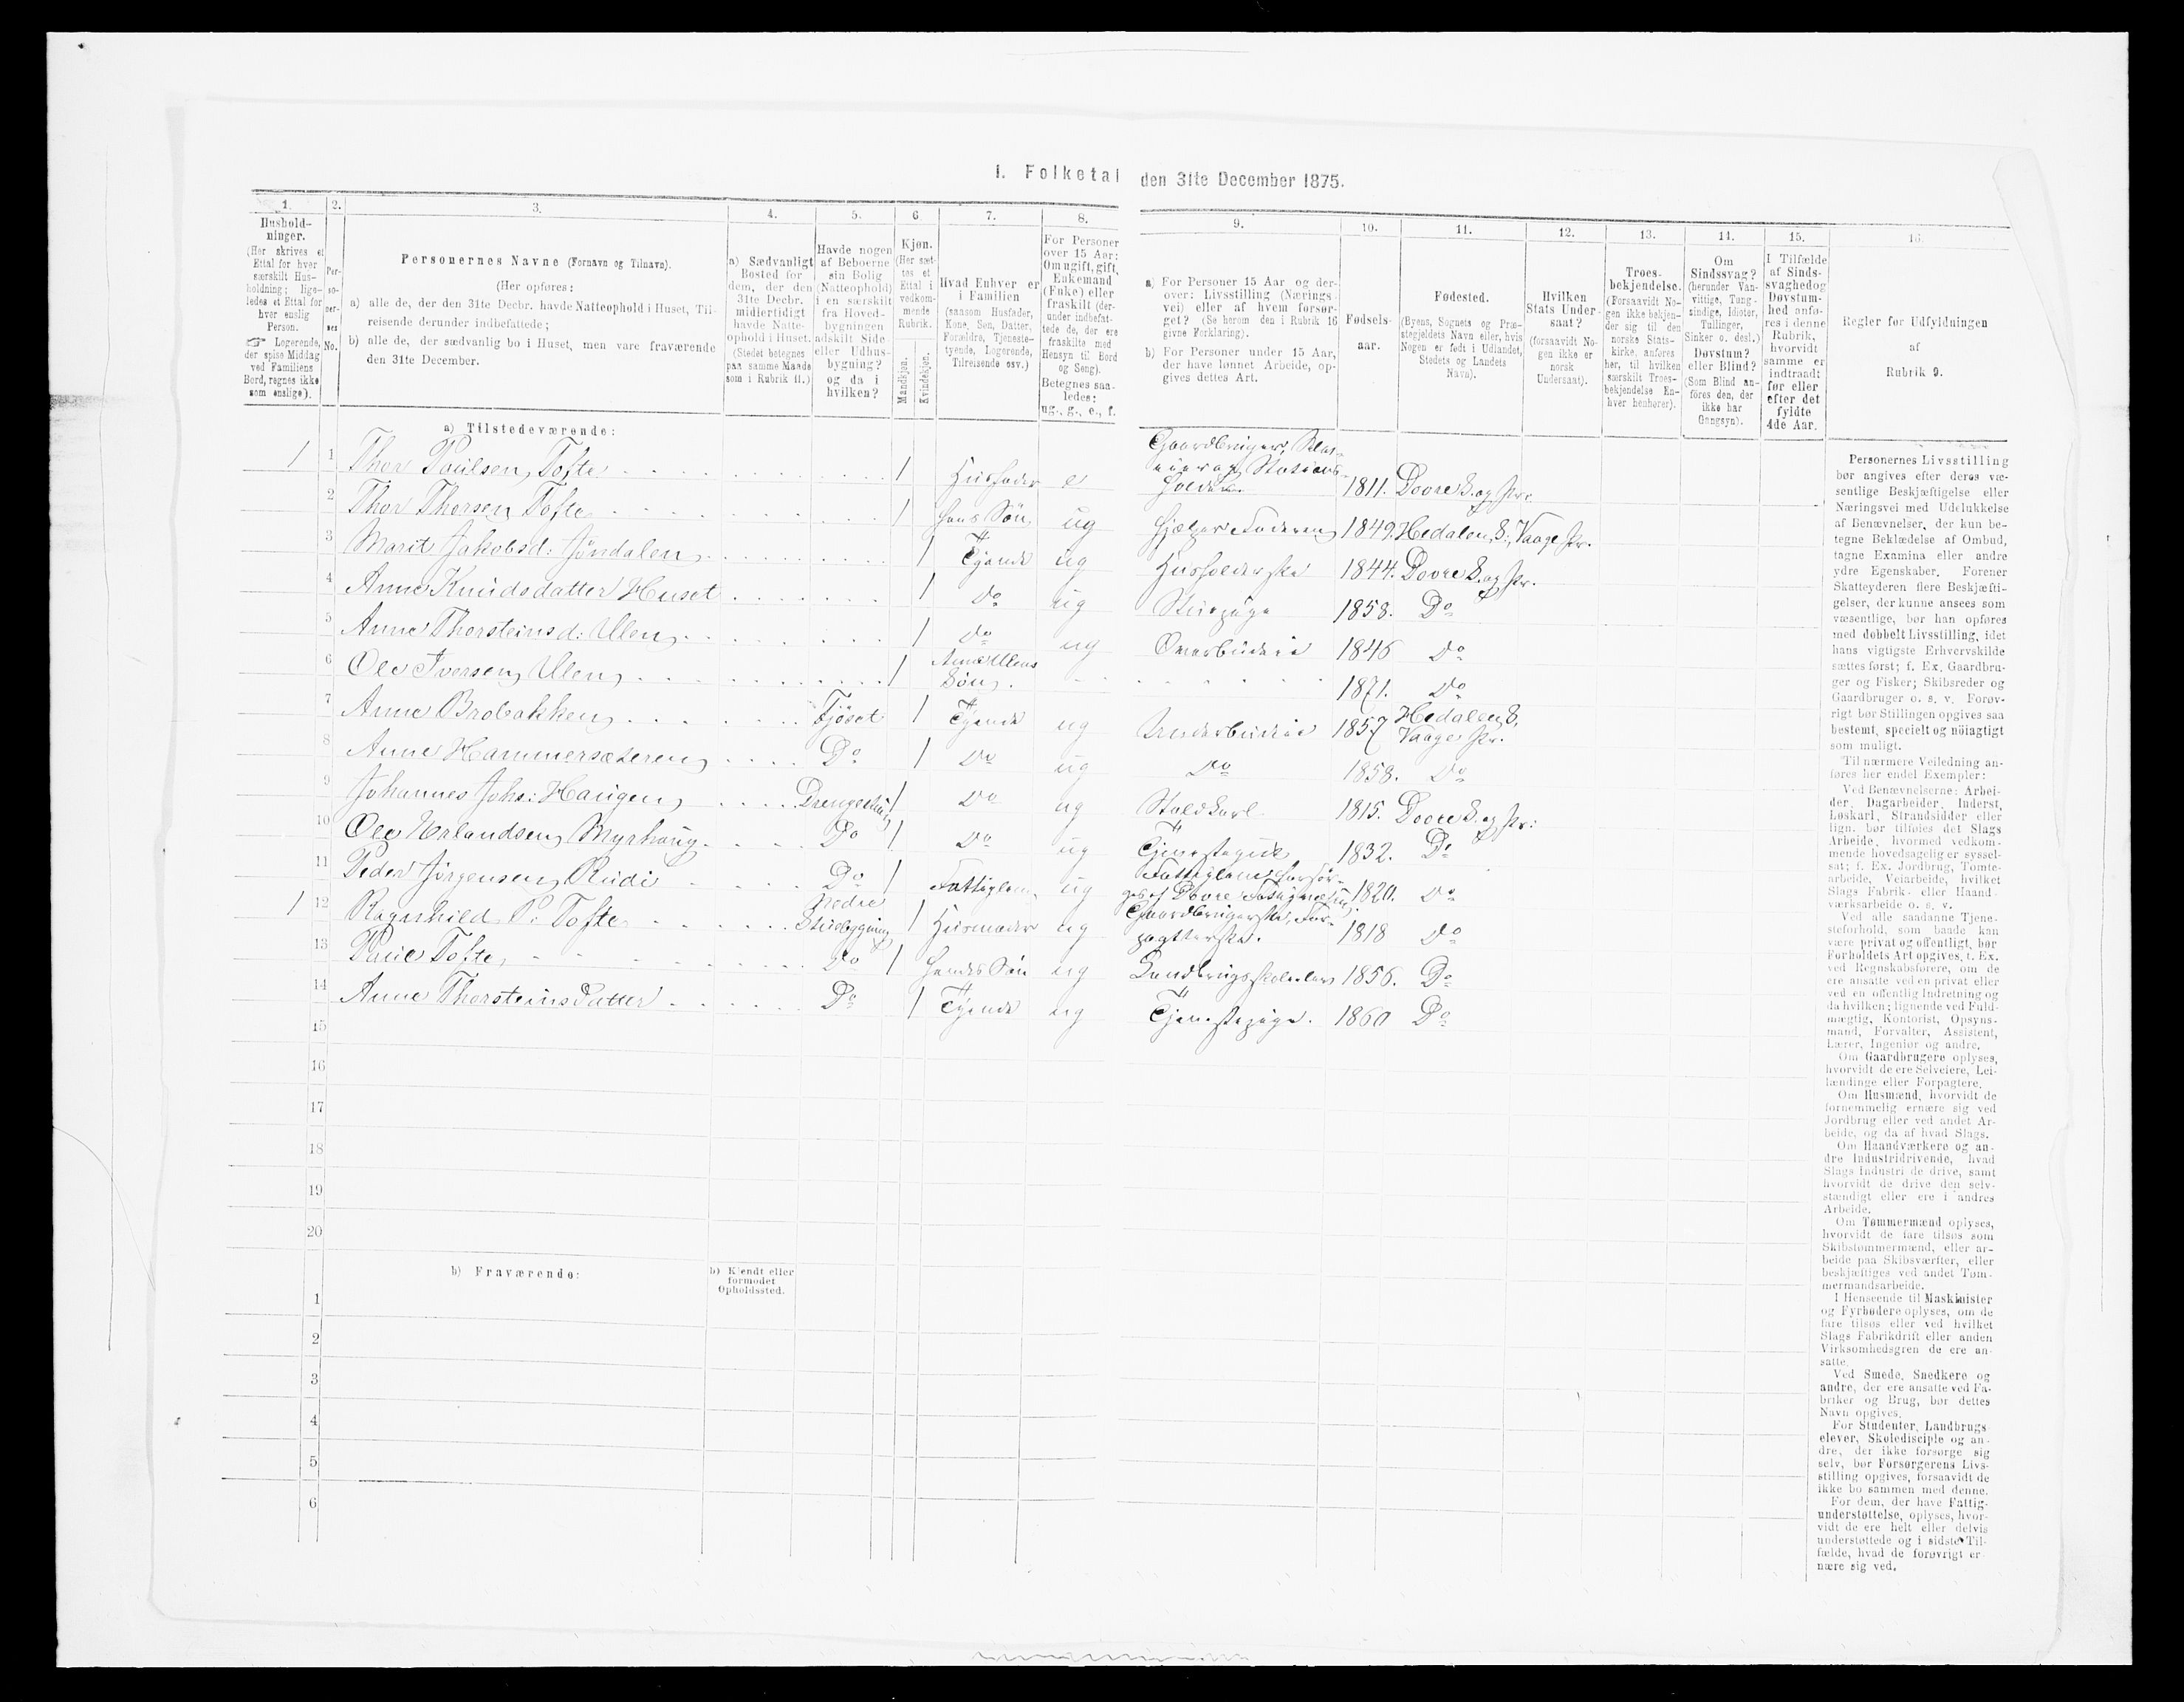 I. Folketal den 31te December 1875.
1. 2. 3. 4. 5. 6 7. 8. 9. 10. 11. 12. 13. 14. 15. 16.
Hushold-
ninger.
(Her skrives et
Ettal for hver
særskilt Hus-
holdning; lige-
ledes et Ettal for
hver enslig
Person.
☞ Logerende,
der spise Middag
ved Familiens
Bord, regnes ikke
som enslige).
Per-
so-
ner-
nes
No.
Personernes Navne (Fornavn og Tilnavn).
(Her opføres:
a) alle de, der den 31te Decbr. havde Natteophold i Huset, Til-
reisende derunder indbefattede;
b) alle de, der sædvanlig bo i Huset, men vare fraværende
den 31te December.
a) Sædvanligt
Bosted for
dem, der den
31te Decbr.
midlertidigt
havde Natte-
ophold i Huset.
(Stedet betegnes
paa samme Maade
som i Rubrik 11.)
Havde nogen
af Beboerne
sin Bolig
(Natteophold)
i en særskilt
fra Hoved-
bygningen
adskilt Side-
eller Udhus-
bygning?
og da i
hvilken?
Kjøn.
(Her sæt-
tes et
Ettal i
vedkom-
mende
Rubrik.
Mandkjøn.
Kvindekjøn.
Hvad Enhver er
i Familien
(saasom Husfader,
Kone, Søn, Datter,
Forældre, Tjeneste-
tyende, Logerende,
Tilreisende osv.)
For Personer
over 15 Aar:
Om ugift, gift,
Enkemand
(Enke) eller
fraskilt (der-
under indbefat-
tede de, der ere
fraskilte med
Hensyn til Bord
og Seng).
Betegnes saa-
ledes:
ug., g., e., f.
a) For Personer 15 Aar og der-
over: Livsstilling (Nærings-
vei) eller af hvem forsør-
get? (Se herom den i Rubrik 16
givne Forklaring).
b) For Personer under 15 Aar,
der have lønnet Arbeide, op-
gives dettes Art.
Fødsels-
aar.
Fødested.
(Byens, Sognets og Præ-
stegjeldets Navn eller, hvis
Nogen er født i Udlandet,
Stedets og Landets
Navn).
Hvilken
Stats Under-
saat?
(forsaavidt No-
gen ikke er
norsk
Undersaat).
Troes-
bekjendelse.
(Forsaavidt No-
gen ikke bekjen-
der sig til den
norske Stats-
kirke, anføres
her, til hvilken
særskilt Troes-
bekjendelse En-
hver henhører).
Om
Sindssvag?
(herunder Van-
vittige, Tung-
sindige, Idioter,
Tullinger,
Sinker o. desl.)
Døvstum?
eller Blind?
(Som Blind an-
føres den, der
ikke har
Gangsyn).
I Tilfælde
af Sinds-
svaghed og
Døvstum-
hed anfø-
res i denne
Rubrik,
hvorvidt
samme er
indtraadt
før eller
efter det
fyldte
4de Aar.
Regler for Udfyldningen
af
Rubrik 9.
a) Tilstedeværende:
1 1 Thor Paulsen Tofte 1 Husfader e Gaardbruger, Selv-
eier og Stations-
holder. 1811. Dovre S. og Pr.
2 Thor Thorsen Tofte 1 hans Søn ug hjælper Faderen 1849. Hedalen, S., Vaage Pr.
3 Marit Jakobsd: Jöndalen 1 Tyende ug Husholderske 1844. Dovre S. og Pr.
4 Anne Knudsdatter Huset 1 Do ug Stuepige 1858. Do
5 Anne Thorsteinsd: Ulen 1 Do ug Overbudeie 1846 Do
6 Ole Iversen Ulen 1 Anne Ulens
Søn. 1871. Do
7 Anne Brobakken Fjöset 1 Tyende ug Underbudeie 1857 Hedalen S.
Vaage Pr.
8 Anne Hammersæteren Do 1 Do ug Do 1858. Do
9 Johannes Johs: Haugen Drengestue 1 Do ug Staldkarl 1815. Dovre S. og Pr:
10 Ole Erlandsen Myrhaug Do 1 Do ug Tjenestegut 1832. Do
11 Peder Jörgensen Rudi Do 1 Fattiglem ug Fattiglem forsør-
get af Dovre Fattigvæsen 1820. Do
1 12 Ragnhild P. Tofte Nedre
Stuebygning 1 Husmoder ug Gaardbrugerske, For-
pagterske. 1818 Do
13 Paul Tofte Do 1 hendes Søn ug Landbrugsskoleelev 1856. Do
14 Anne Thorsteins Datter Do 1 Tyende ug Tjenestepige. 1860 Do
15
16
17
18
19
20
b) Fraværende:
b) Kjendt eller
formodet
Opholdssted.
1
2
3
4
5
6
Personernes Livsstilling
bør angives efter deres væ-
sentlige Beskjæftigelse eller
Næringsvei med Udelukkelse
af Benævnelser, der kun be-
tegne Beklædelse af Ombud,
tagne Examina eller andre
ydre Egenskaber. Forener
Skatteyderen flere Beskjæfti-
gelser, der kunne ansees som
væsentlige, bør han opføres
med dobbelt Livsstilling, idet
hans vigtigste Erhvervskilde
sættes først; f. Ex. Gaardbru-
ger og Fisker; Skibsreder og
Gaardbruger o. s. v. Forøv-
rigt bør Stillingen opgives saa
bestemt, specielt og nöiagtigt
som muligt.
Til nærmere Veiledning an-
føres her endel Exempler:
Ved Benævnelserne: Arbei-
der, Dagarbeider, Inderst,
Løskarl, Strandsidder eller
lign. bør tilføies det Slags
Arbeide, hvormed vedkom-
mende hovedsagelig er syssel-
sat; f. Ex. Jordbrug, Tomte-
arbeide, Veiarbeide, hvilket
Slags Fabrik- eller Haand-
værksarbeide o. s. v.
Ved alle saadanne Tjene-
steforhold, som baade kan
være privat og offentligt, bør
Forholdets Art opgives, t. Ex.
ved Regnskabsførere, om de
ere ansatte ved en privat eller
ved en offentlig Indretning og
da hvilken; lignende ved Fuld-
mægtig, Kontorist, Opsyns-
mand, Forvalter, Assistent,
Lærer, Ingeniør og andre.
Om Gaardbrugere oplyses,
hvorvidt de ere Selveiere, Lei-
lændinge eller Forpagtere.
Om Husmænd, hvorvidt de
fornemmelig ernære sig ved
Jordbrug eller ved andet Ar-
beide, og da af hvad Slags.
Om Haandværkere og an-
dre Industridrivende, hvad
Slags Industri de drive, samt
hvorvidt de drive den selv-
stændigt eller ere i andres
Arbeide.
Om Tømmermænd oplyses,
hvorvidt de fare tilsøs som
Skibstømmermænd, eller ar-
beide paa Skibsværfter, eller
beskjæftiges ved andet Tøm-
mermandsarbeide.
I Henseende til Maskinister
og Fyrbødere oplyses, om de
fare tilsøs eller ved hvilket
Slags Fabrikdrift eller anden
Virksomhedsgren de ere an-
satte.
Ved Smede, Snedkere og
andre, der ere ansatte ved Fa-
briker og Brug, bør dettes
Navn opgives.
For Studenter, Landbrugs-
elever, Skoledisciple og an-
dre, der ikke forsørge sig
selv, bør Forsørgerens Livs-
stilling opgives, forsaavidt de
ikke bo sammen med denne.
For dem, der have Fattig-
understøttelse, oplyses, hvor-
vidt de ere helt eller delvis
understøttede og i sidste Til-
fælde, hvad de forøvrigt er-
nære sig ved.